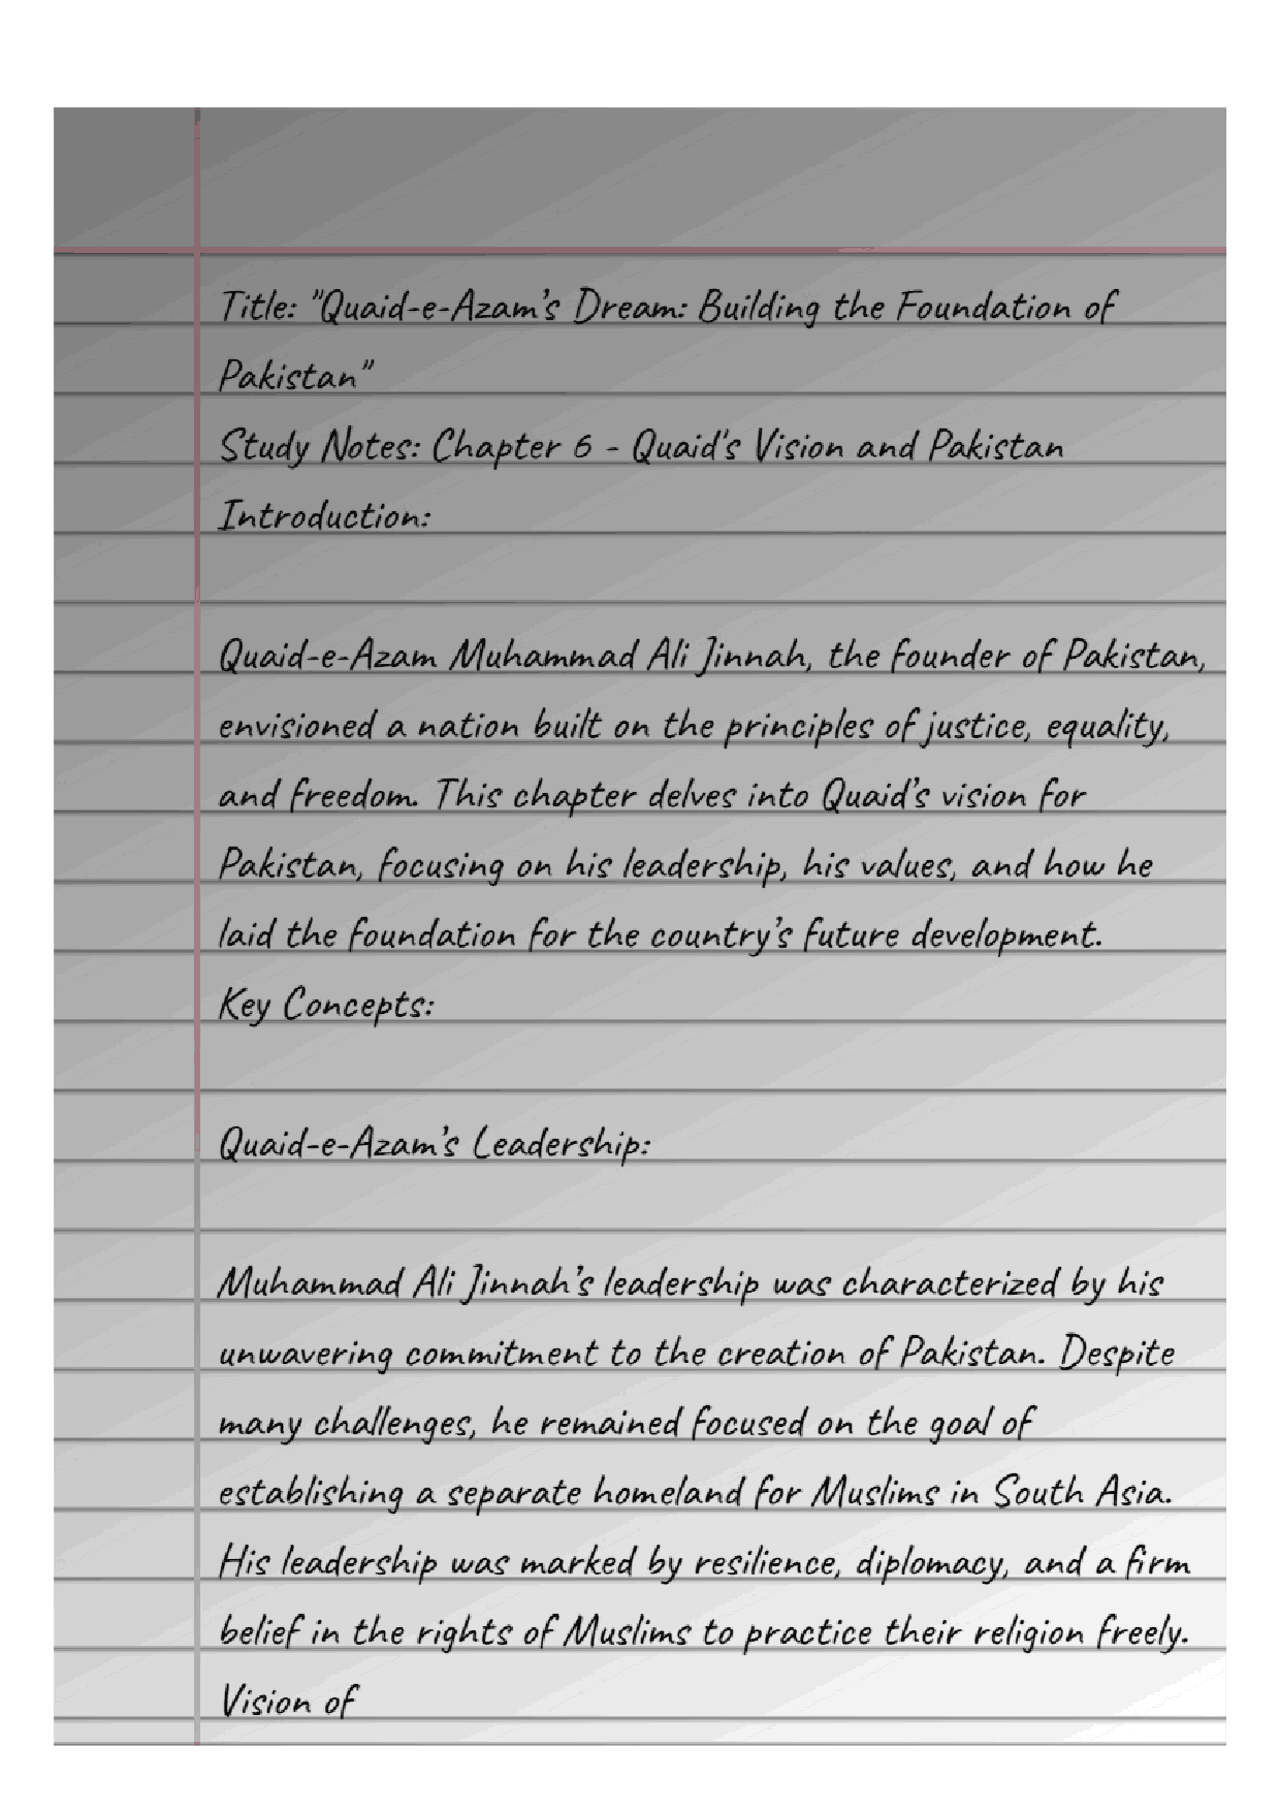 Title: "Quaid-e-Azam’s Dream: Building the Foundation of
Pakistan"
Study Notes: Chapter 6 - Quaid's Vision and Pakistan
Introduction:
Quaid-e-Azam Muhammad Ali Jinnah, the founder of Pakistan,
envisioned a nation built on the principles of justice, equality,
and freedom. This chapter delves into Quaid’s vision for
Pakistan, focusing on his leadership, his values, and how he
laid the foundation for the country’s future development.
Key Concepts:
Quaid-e-Azam’s Leadership:
Muhammad Ali Jinnah’s leadership was characterized by his
unwavering commitment to the creation of Pakistan. Despite
many challenges, he remained focused on the goal of
establishing a separate homeland for Muslims in South Asia.
His leadership was marked by resilience, diplomacy, and a firm
belief in the rights of Muslims to practice their religion freely.
Vision of